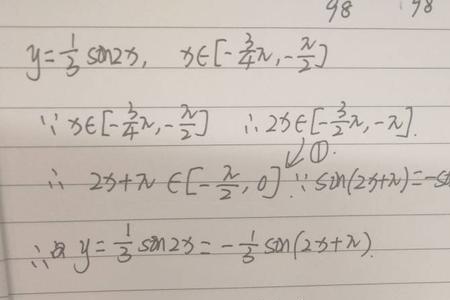 98 98
y=1/3 sin2x, x∈[-3/4π, -π/2]
∵ x∈[-3/4π, -π/2] ∴ 2x∈[-3/2π, -π].
①.
∴ 2x+π∈[-π/2, 0] ∵ sin(2x+π)=-s
∴ y=1/3 sin2x=-1/3 sin(2x+π).